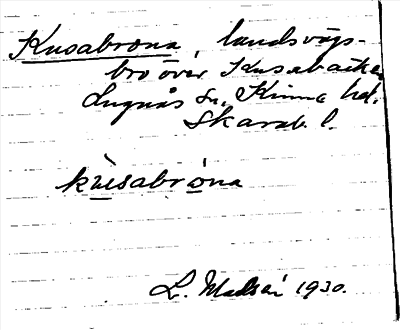 Kusabrona, landsvägs-
bro över Kusabäcken
Lugnås sn, Kinne hd.
Skarab. l.
kuisabrona
L. 1930.